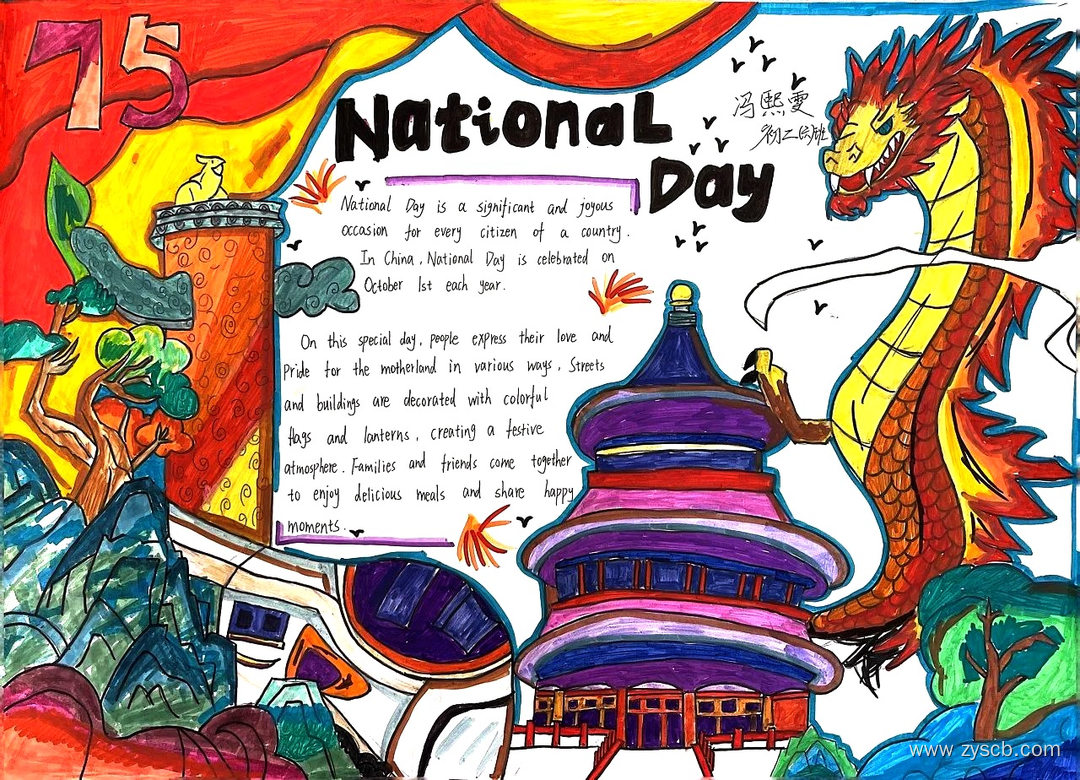 75
National
Day
冯熙雯
National Day is a significant and joyous
occasion for every citizen of a country.
In China, National Day is celebrated on
October 1st each year.
On this special day, people express their love and
Pride for the motherland in various ways. Streets
and buildings are decorated with colorful
flags and lanterns, creating a festive
atmosphere. Families and friends come together
to enjoy delicious meals and share happy
moments.
www.zyscb.com